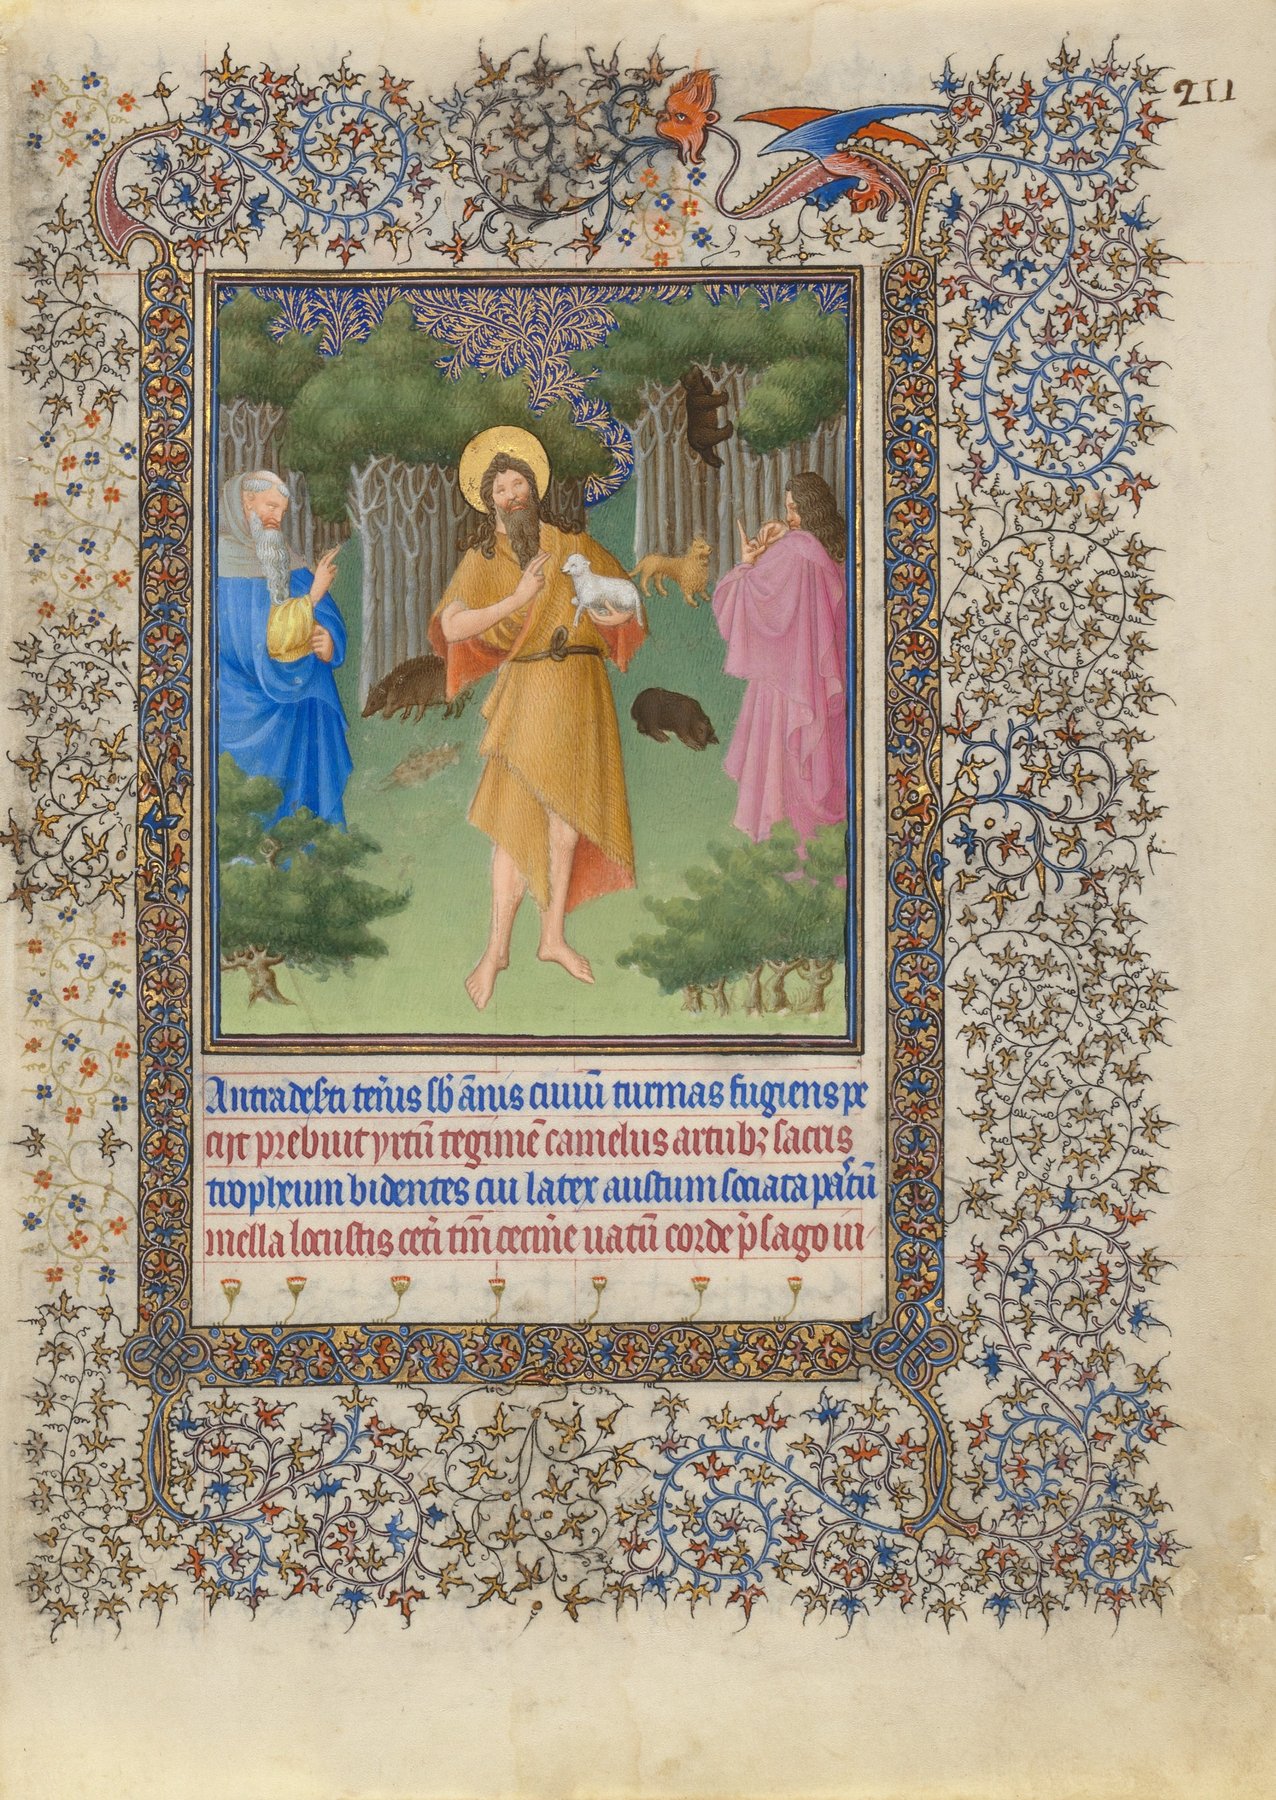 211
Antra des̄ti ten̄is sb̄ ānis ciuiū turmas fugiens pe
ciit prebuit yrtū tegimē camelus artubꝫ sacris
tropheum bidentes cui latex austum sociata pastū
mella locustis cet̄i tm̄ cecin̄e uatū corde p̄sago iu-